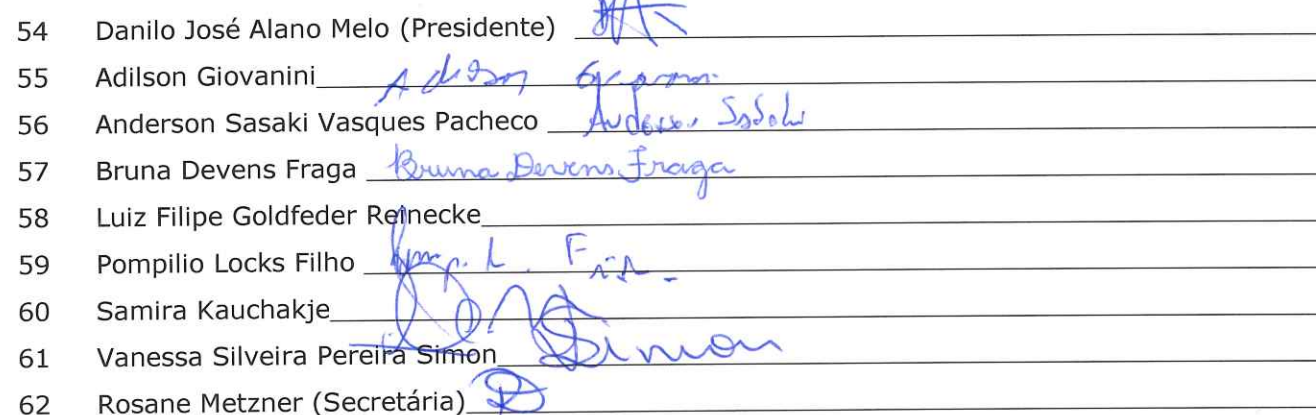 54 Danilo José Alano Melo (Presidente)
55 Adilson Giovanini Adilson
56 Anderson Sasaki Vasques Pacheco Anderson Sasaki
57 Bruna Devens Fraga Bruna Devens Fraga
58 Luiz Filipe Goldfeder Reinecke
59 Pompilio Locks Filho
60 Samira Kauchakje
61 Vanessa Silveira Pereira Simon Simon
62 Rosane Metzner (Secretária)